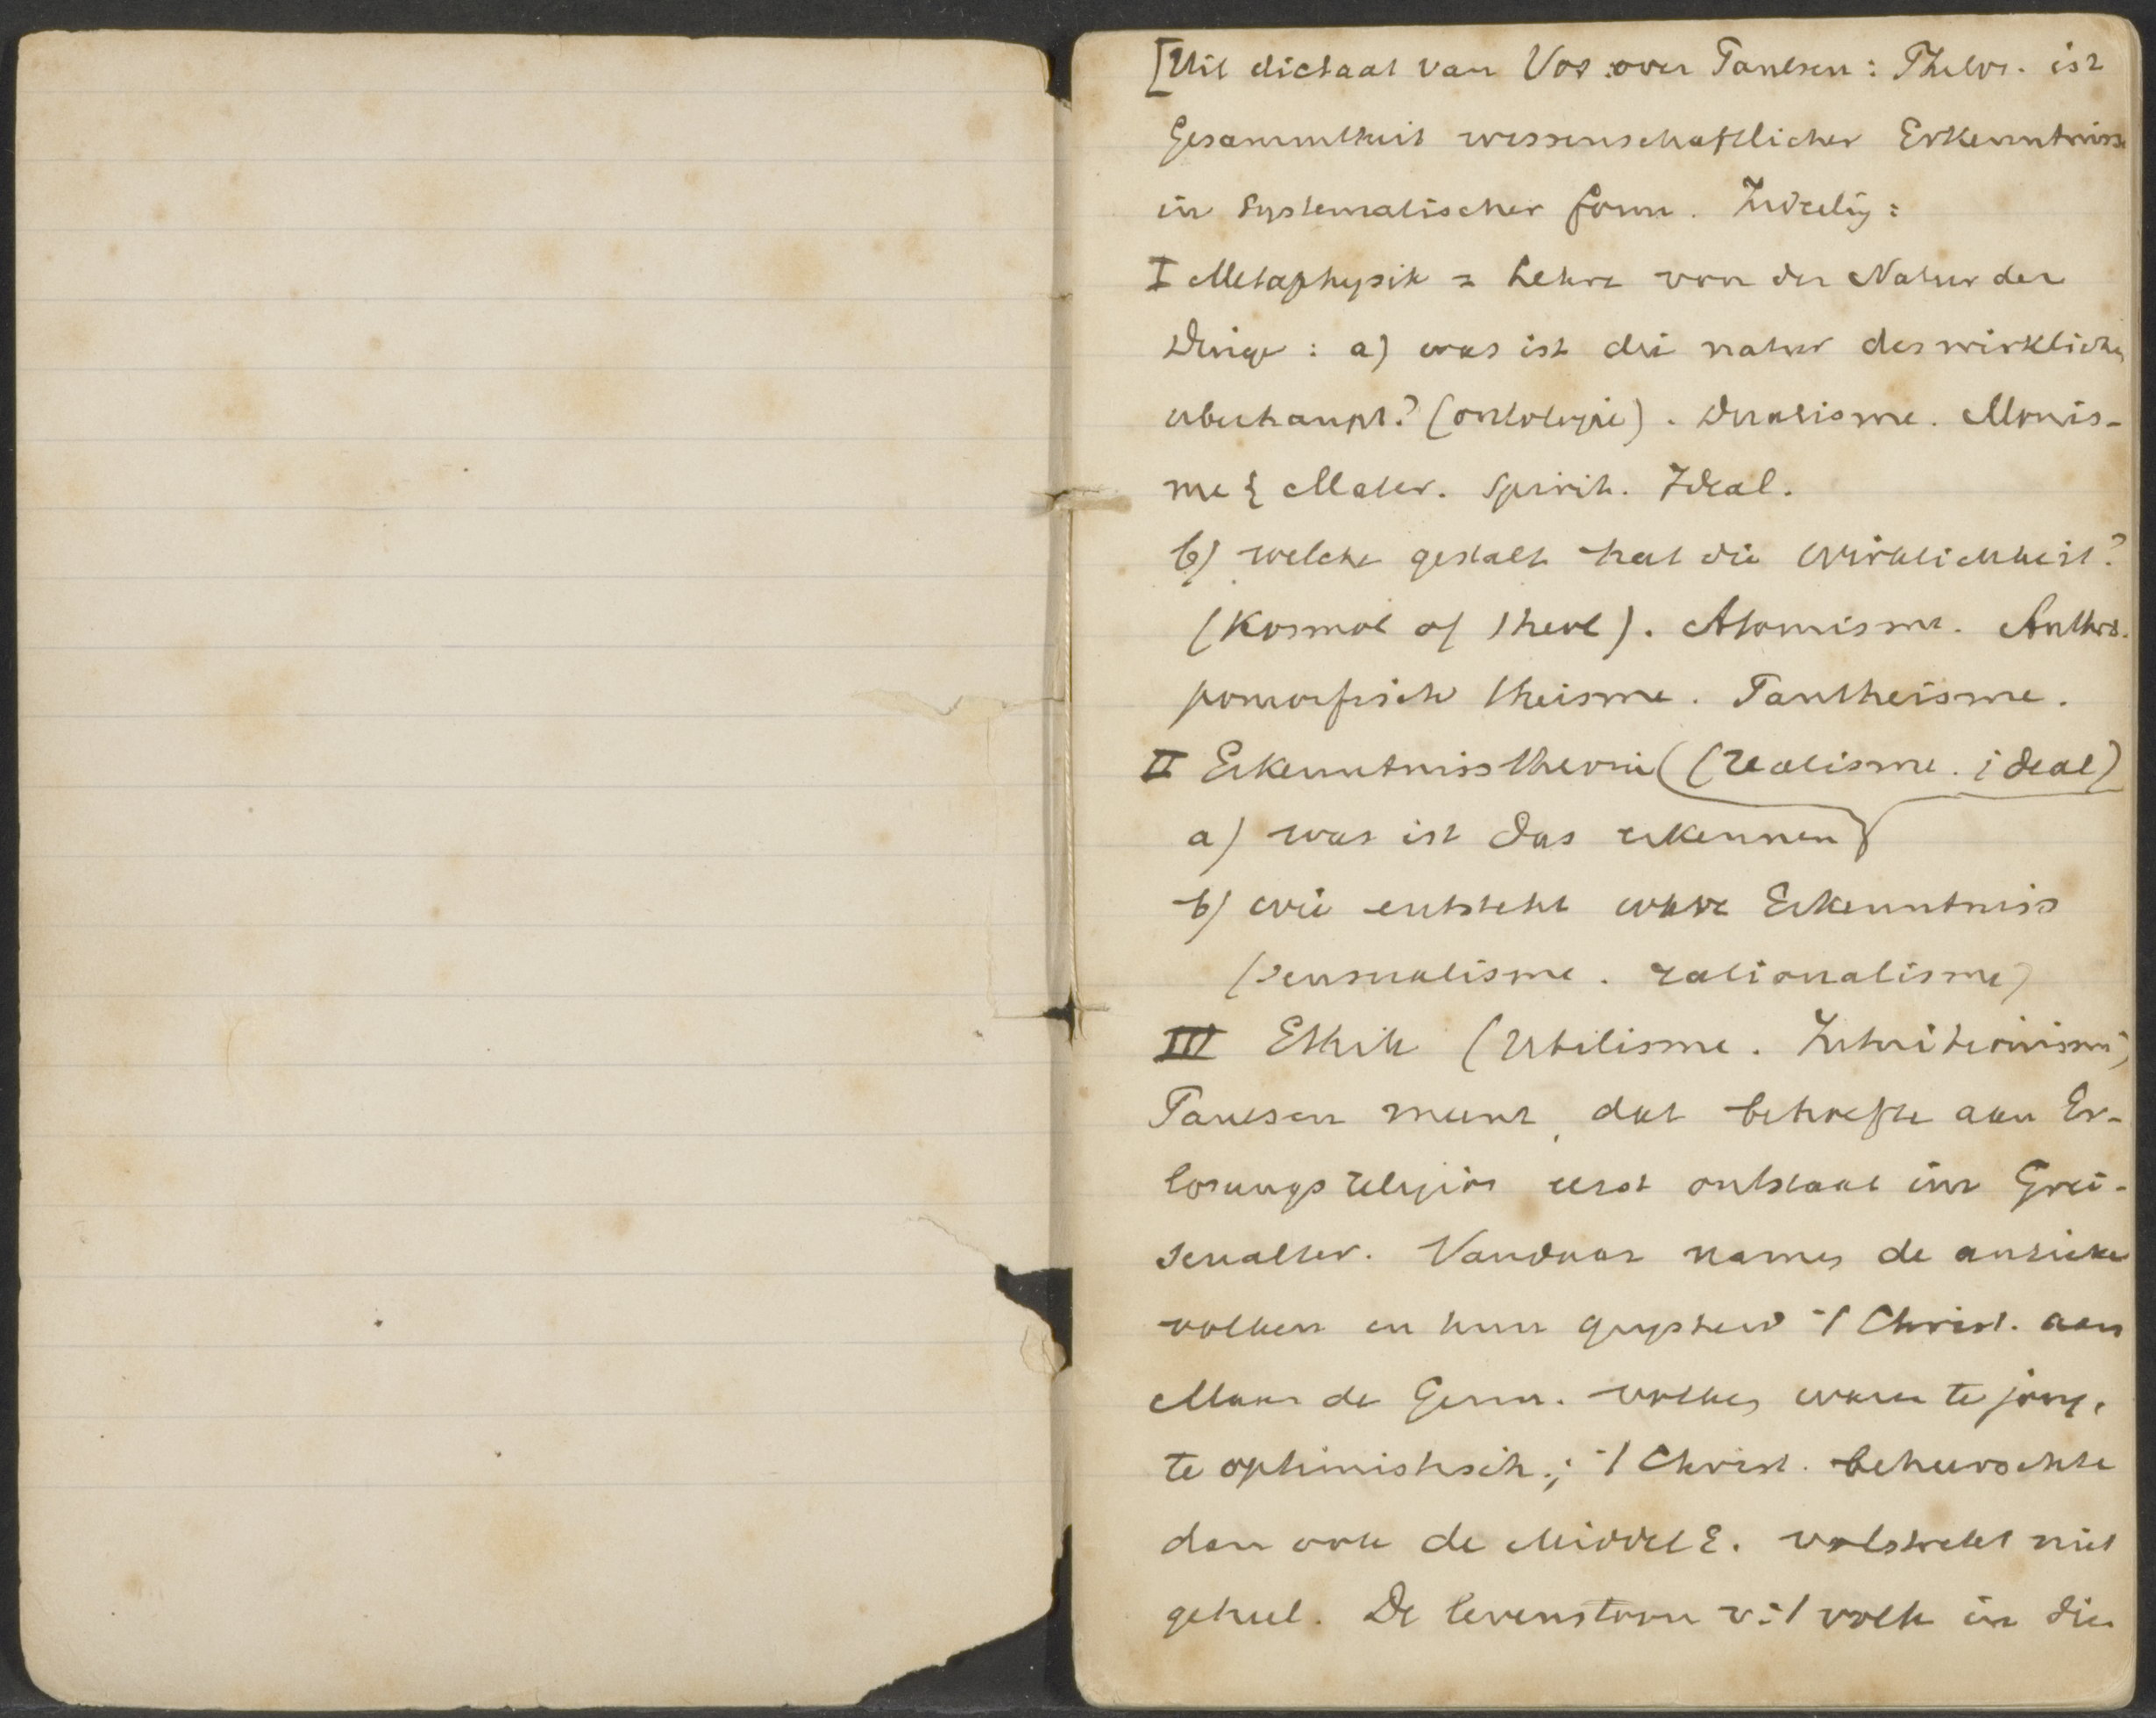 [Uit dictaat van Vos over Paulsen: Philos. ist
Gesammtheit wissenschaftlicher Erkenntnisse
in systematischer form.
I Metaphysik = Lehre von der Natur der
Dinge: a) was ist die natur des wirklichen
uberhaupt? (ontologie). Dualisme. Monis-
me { Mater. Spirit. Ideal.
b) welche gestalt hat die Wirklichkeit?
(Kosmol of theol). Atomisme. Anthro-
pomorfisch theisme. Pantheisme.
II Erkenntnisstheorie ((realisme. ideal)
a) was ist das erkennen
b) wie entsteht ware Erkenntniss
(sensualisme. rationalisme)
III Ethik (Utilisme. Intuitionisme)
Paulsen meent, dat behoefte aan Er-
losungsreligion eerst ontstaat im Grei-
senalter. Vandaar namen de antieke
volken en hun 't Christ. aan
Maar de Germ. volken waren te jong,
te optimistisch; 't Christ. beheerschte
dan ook de MiddelE. volstrekt niet
geheel. De levenstoon v. 't volk in die